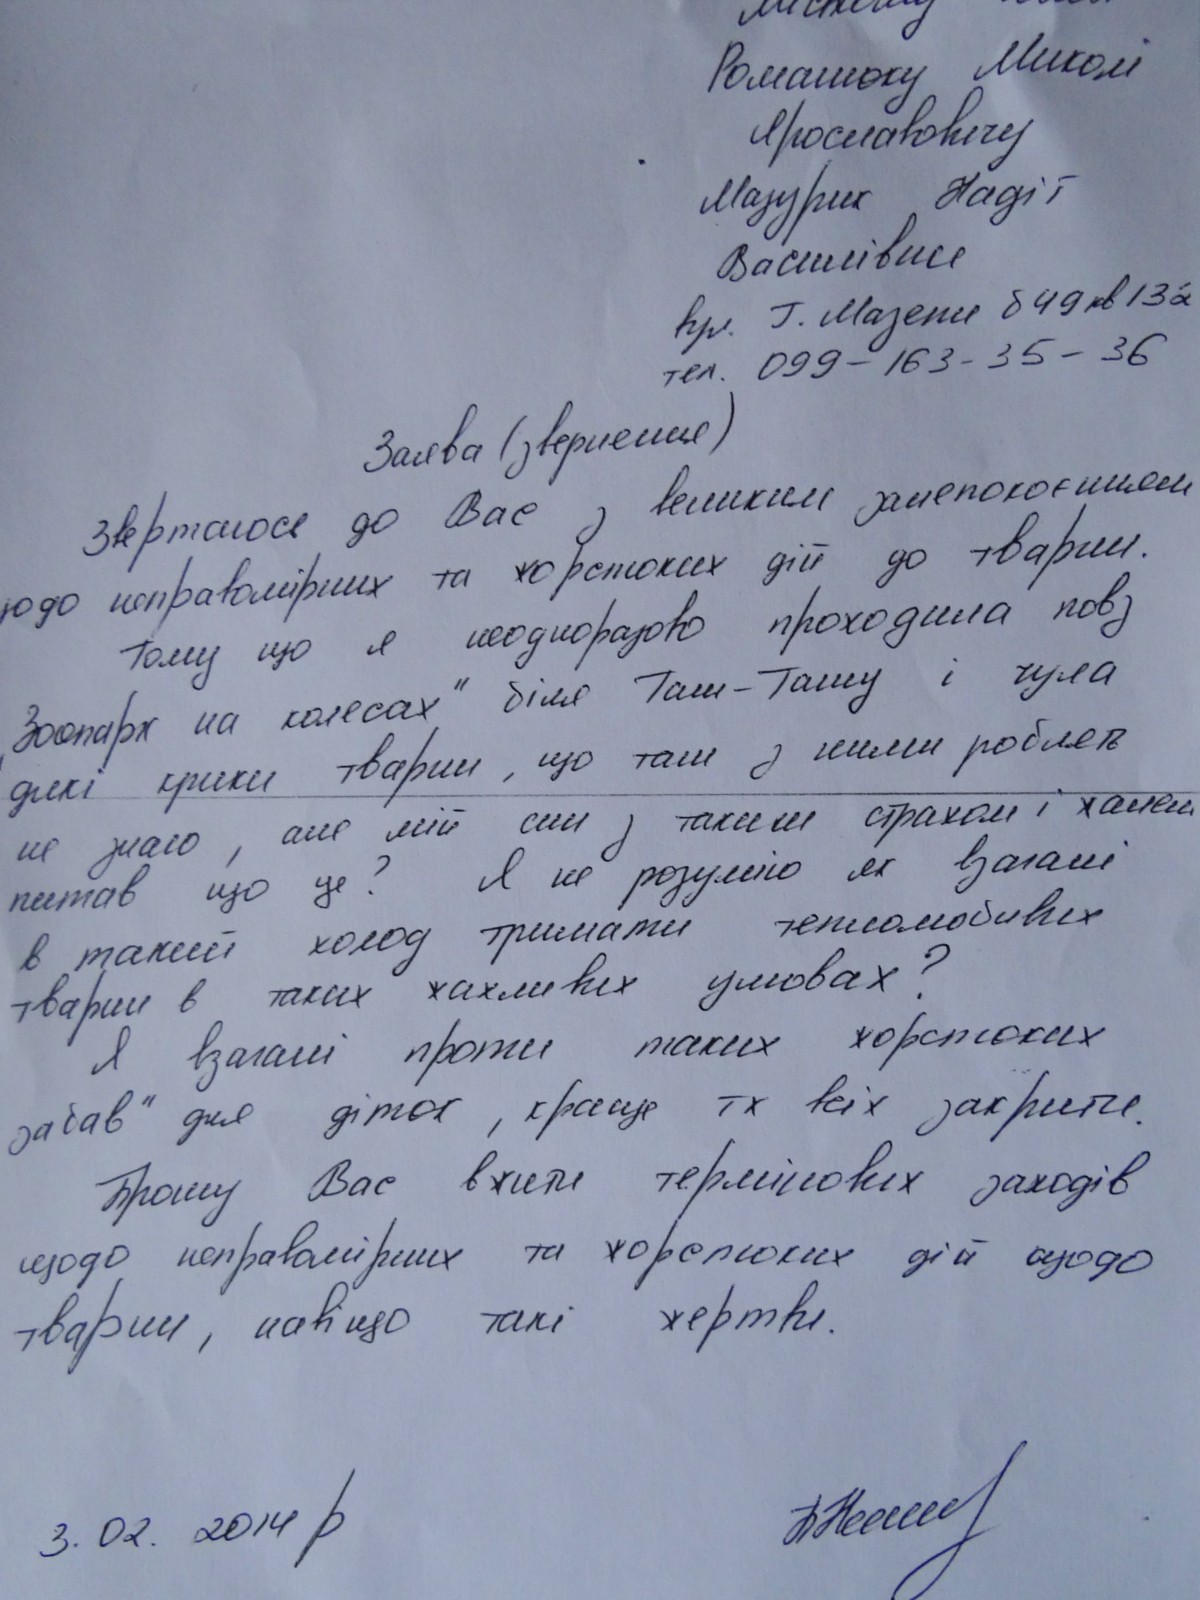 Міському
Романюку Миколі
Ярославовичу
Мазурик Надії
Василівни
вул. І. Мазепи б 49 кв 13а
тел. 099-163-35-36
Заява (звернення)
Звертаюся до Вас з великим занепокоєнням
щодо неправомірних та жорстоких дій до тварин.
Тому що я неодноразово проходила повз
„Зоопарк на колесах" біля Таш-Ташу і чула
дикі крики тварин, що там з ними роблять
не знаю, але мій син з таким страхом і жалем
питав що це? Я не розумію як взагалі
в такий холод тримати теплолюбивих
тварин в таких жахливих умовах?
Я взагалі проти таких жорстоких
„забав" для діток, краще їх всіх закрити.
Прошу Вас вжити термінових заходів
щодо неправомірних та жорстоких дій щодо
тварин, навіщо такі жертви.
3. 02. 2014 р